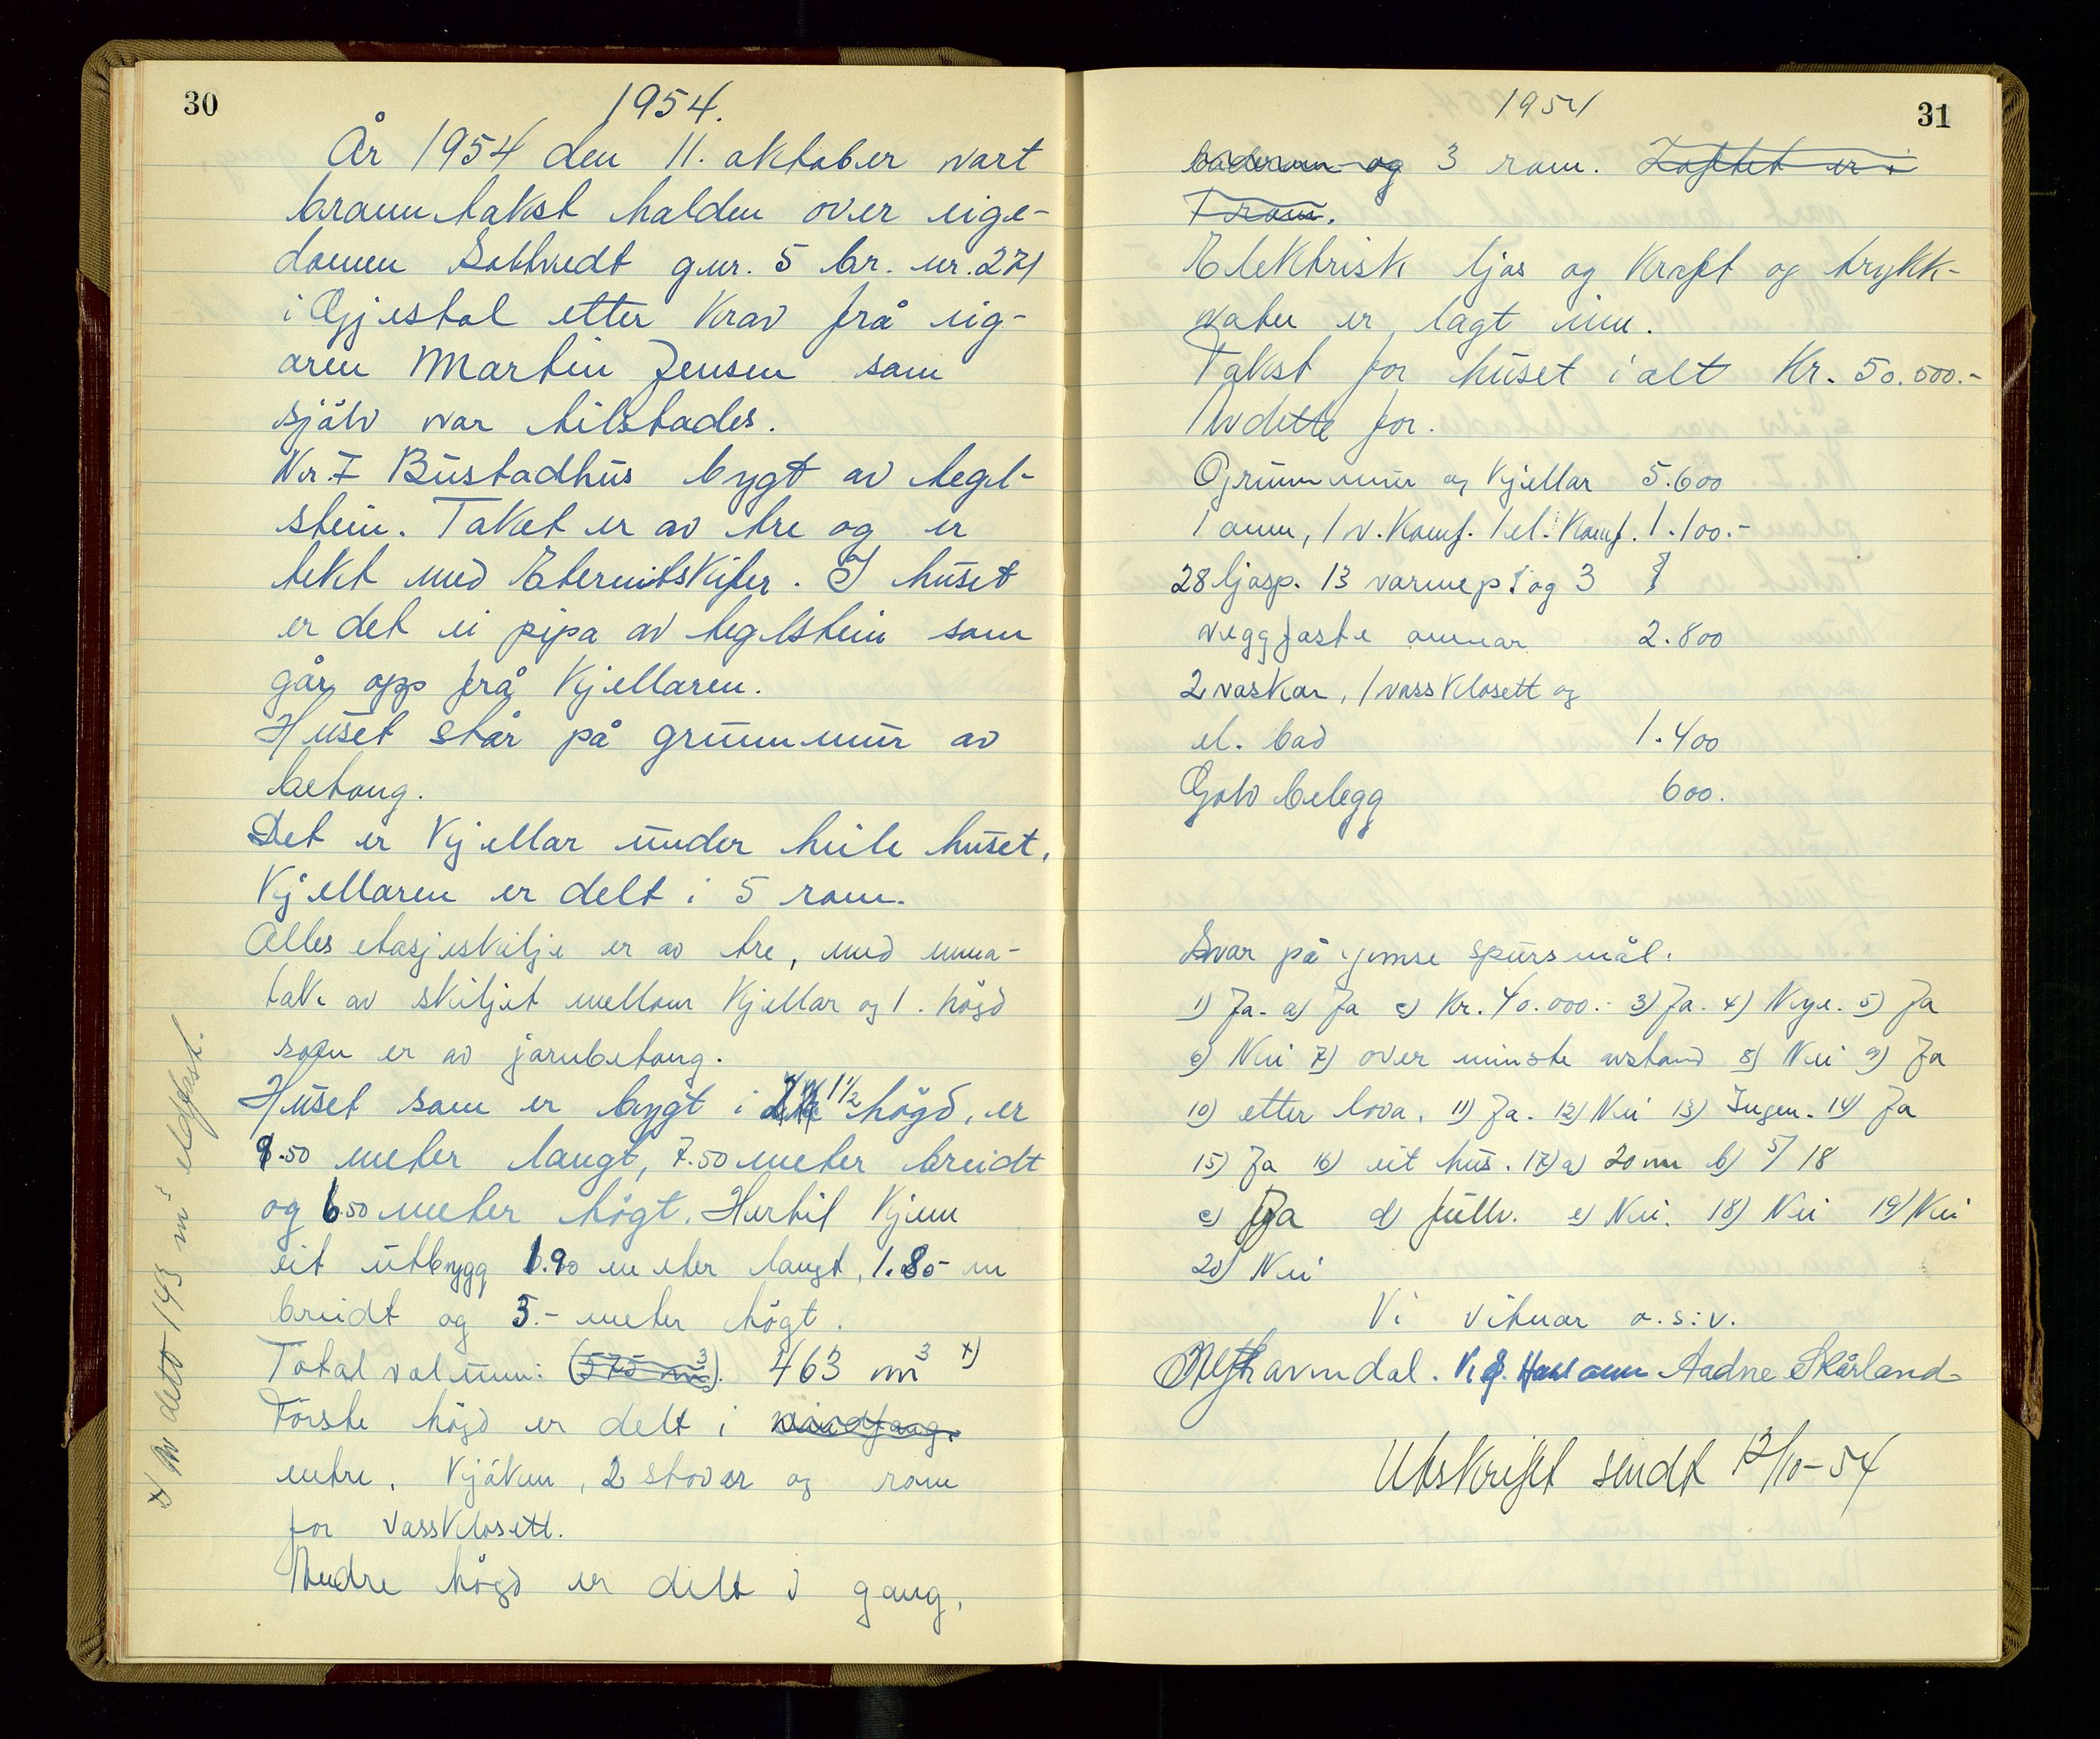 30
1954.
År 1954 den 11. oktober vart
branntakst halden over eige-
domen Solhvedt gnr. 5 br. nr. 271
i Gjestal etter krav frå eig-
aren Martin Jensen som
sjølv var tilstades.
Nr. I Bustadhus bygt av tegl-
stein. Taket er av tre og er
tekt med Eternitskifer. I huset
er det ei pipa av teglstein som
går opp frå kjellaren.
Huset står på grunnmur av
betong.
Det er kjellar under heile huset,
Kjellaren er delt i 5 rom.
Alles etasjeskilje er av tre, med unna-
tak av skiljet mellom kjellar og 1. högd
som er av jarnbetong.
Huset som er bygt i 1½ högd, er
9.50 meter langt, 7.50 meter breidt
og 6.50 meter högt. Hertil kjem
eit utbygg 1.90 meter langt, 1.80 m
breidt og 5.- meter högt.
Total volum: (575 m³). 463 m³ x)
Förste högd er delt i vindfang,
entre, kjöken, 2 stover og rom
for vassklosett.
Andre högd er delt i gang,
x) Av dette 143 m³ eldfast.
1954
31
baderom og 3 rom. Loftet er i
1 rom.
Elektrisk ljos og kraft og trykk-
vatn er lagt inn.
Takst for huset i alt Kr. 50.500.-
Av dette for.
Grunnmur og kjellar 5.600
1 omn, 1 v. Komf. 1 el. Komf. 1.100.-
28 ljosp. 13 varmep. og 3
veggfaste omnar 2.800
2 vaskar, 1 vassklosett og
el. bad 1.400
Golv belegg 600.
Svar på ymse spursmål.
1) Ja. a) Ja c) Kr. 40.000.- 3) Ja. 4) Nye. 5) Ja
6) Nei 7) over minste avstand 8) Nei 9) Ja
10) etter lova. 11) Ja. 12) Nei 13) Ingen. 14) Ja
15) Ja 16) eit hus. 17) a) 20 m b) 5/18
c) Ja d) fullv. e) Nei. 18) Nei 19) Nei
20) Nei
Vi vitnar o.s.v.
Aadne Skårland
Utskrift sendt 12/10-54